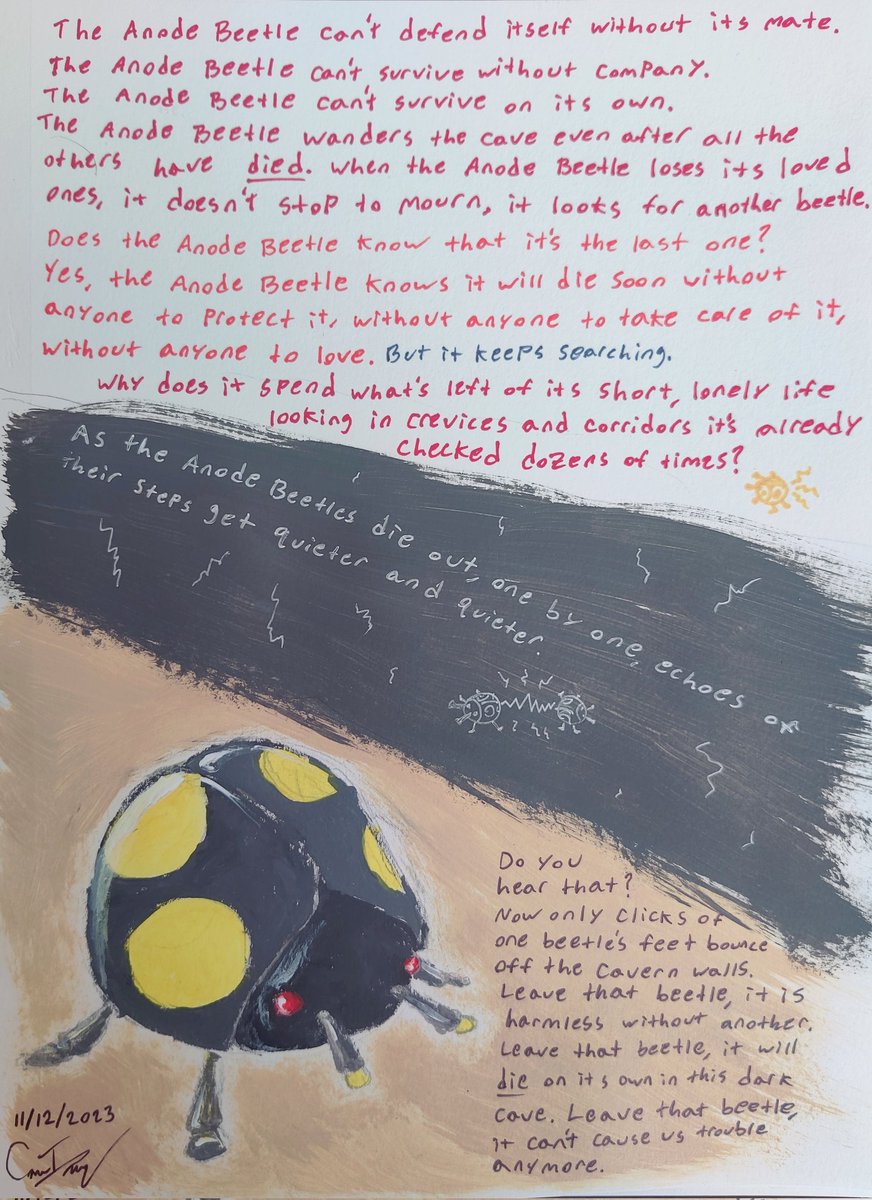 The Anode Beetle can't defend itself without its mate.
The Anode Beetle can't survive without company.
The Anode Beetle can't survive on its own.
The Anode Beetle wanders the cave even after all the
others have died. When the Anode Beetle loses its loved
ones, it doesn't stop to mourn, it looks for another beetle.
Does the Anode Beetle know that it's the last one?
Yes, the Anode Beetle knows it will die soon without
anyone to protect it, without anyone to take care of it,
without anyone to love. But it keeps searching.
Why does it spend what's left of its short, lonely life
looking in crevices and corridors it's already
checked dozens of times?
As the Anode Beetles die out, one by one, echoes of
their steps get quieter and quieter.
Do you
hear that?
Now only clicks of
one beetle's feet bounce
off the cavern walls.
Leave that beetle, it is
harmless without another.
Leave that beetle, it will
die on its own in this dark
cave. Leave that beetle,
it can't cause us trouble
anymore.
11/12/2023